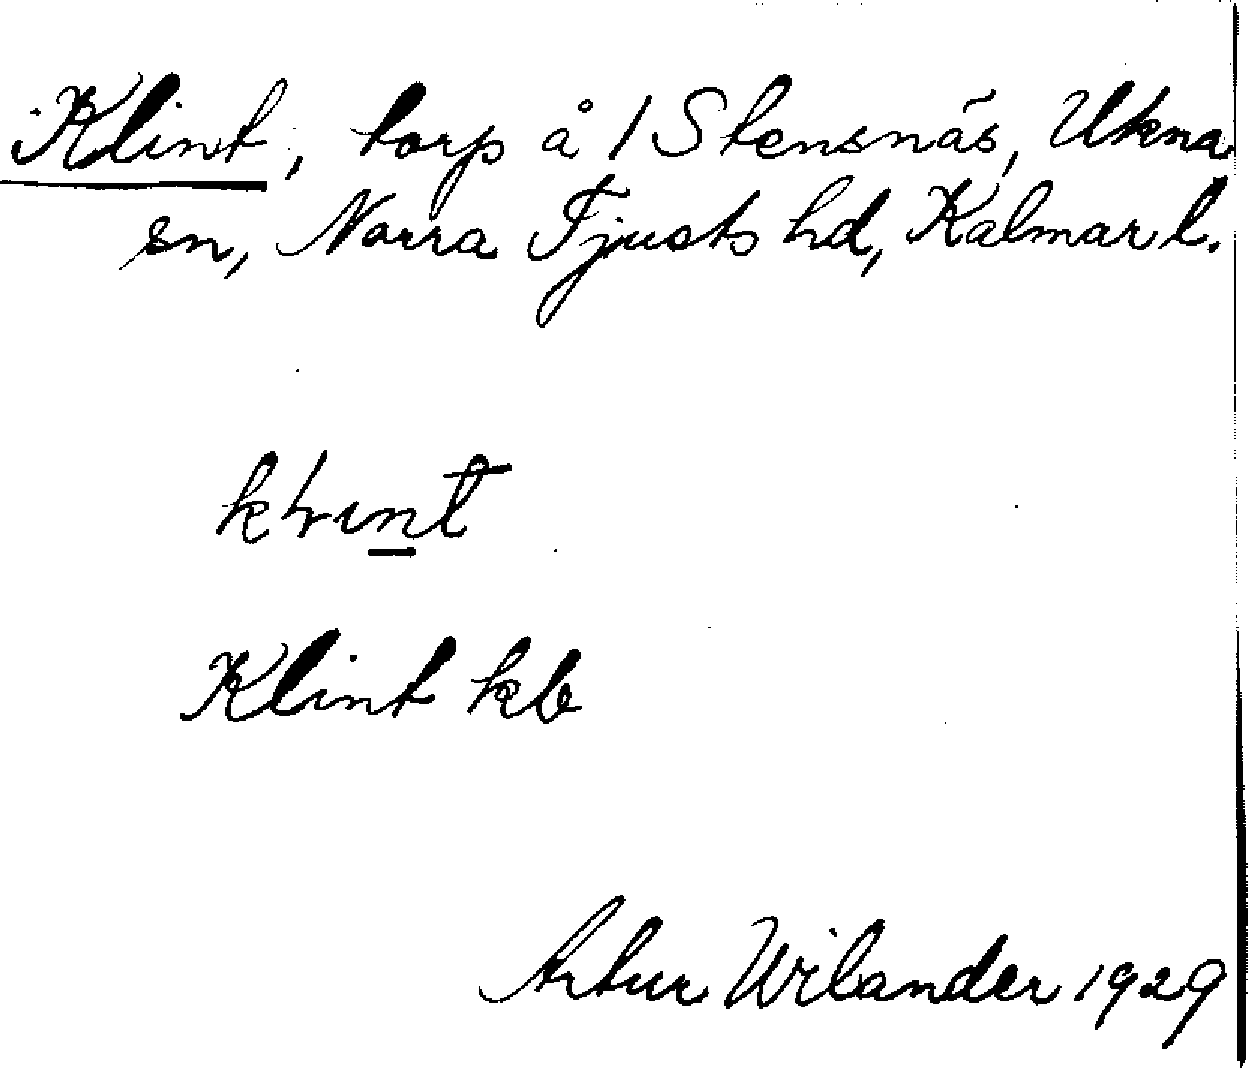 Klint, torp å 1 Stensnäs, Ukna
sn, Norra Tjusts hd, Kalmar l.
Klint kb
Artur Wilander 1929